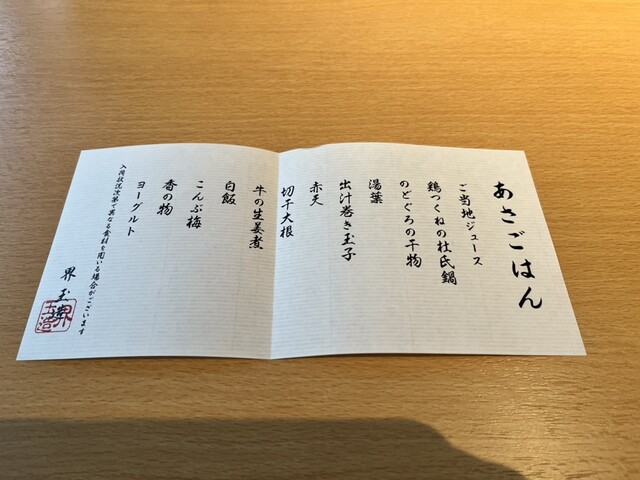 あさごはん
ご当地ジュース
鶏つくねの杜氏鍋
のどぐろの干物
湯葉
出汁巻き玉子
赤天
切干大根
牛の生姜煮
白飯
こんぶ梅
香の物
ヨーグルト
入荷状況次第で異なる食材を用いる場合がございます
界 玉造
界玉造